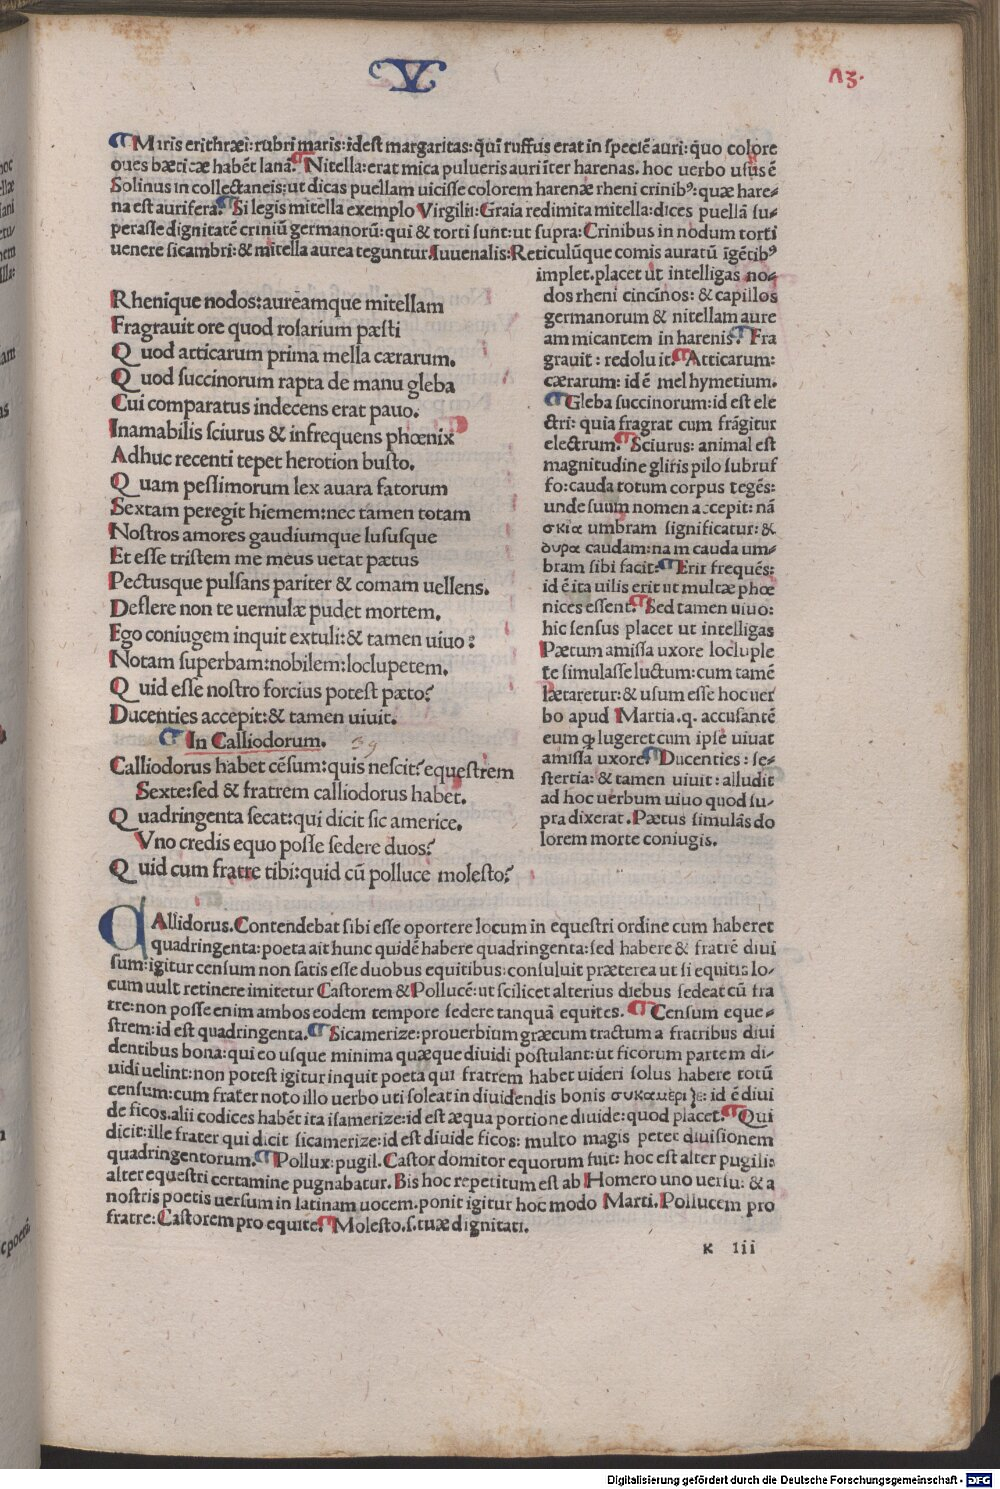 V
¶Maris erithræi: rubri maris: idest margaritas: qūī ruffus erat in speciē auri: quo colore
oues bæticæ habēt lanā. ¶Nitella: erat mica pulueris auri īter harenas. hoc uerbo usus ē
Solinus in collectaneis: ut dicas puellam uicisse colorem harenæ rheni crinibꝰ: quæ hare-
na est aurifera. ¶Si legis mitella exemplo Virgilii: Graia redimita mitella: dices puellā su-
perasse dignitatē criniū germanorū: qui & torti sunt: ut supra: Crinibus in nodum torti
uenere sicambri: & mitella aurea teguntur. Iuuenalis: Reticulūque comis auratū īgētibꝰ
implet. placet ut intelligas no-
dos rheni cincinos: & capillos
germanorum & nitellam aure
am micantem in harenis. ¶Fra
grauit: redoluit. ¶Atticarum:
cærarum: id ē mel hymetium.
¶Gleba succinorum: id est ele
ctri: quia fragrat cum frāgitur
electrum. ¶Sciurus: animal est
magnitudine gliris pilo subruf
fo: cauda totum corpus tegēs:
unde suum nomen accepit: nā
σκια umbram significatur: &
ουρα caudam: nam cauda um-
bram sibi facit: ¶Erir frequēs:
id ē ita uilis erit ut multæ phœ
nices essent. ¶Sed tamen uiuo:
hic sensus placet ut intelligas
Pætum amissa uxore locuple
te simulasse luctum: cum tamē
lætaretur: & usum esse hoc uer
bo apud Martia. q. accusantē
eum ꝙ lugeret cum ipse uiuat
amissa uxore. ¶Ducenties: se-
stertia: & tamen uiuit: alludit
ad hoc uerbum uiuo quod su-
pra dixerat. Pætus simulās do
lorem morte coniugis.
Rhenique nodos: aureamque mitellam
Fragrauit ore quod rosarium pæsti
Quod atticarum prima mella cærarum.
Quod succinorum rapta de manu gleba
Cui comparatus indecens erat pauo.
Inamabilis sciurus & infrequens phœnix
Adhuc recenti tepet herotion busto.
Quam pessimorum lex auara fatorum
Sextam peregit hiemem: nec tamen totam
Nostros amores gaudiumque lususque
Et esse tristem me meus uetat pætus
Pectusque pulsans pariter & comam uellens.
Deflere non te uernulæ pudet mortem.
Ego coniugem inquit extuli: & tamen uiuo?
Notam superbam: nobilem: loclupetem.
Quid esse nostro forcius potest pæto?
Ducenties accepit: & tamen uiuit.
¶In Calliodorum. 39
Calliodorus habet cēsum: quis nescit? equestrem
Sexte: sed & fratrem calliodorus habet.
Quadringenta secat: qui dicit sic americe.
Vno credis equo posse sedere duos?
Quid cum fratre tibi: quid cū polluce molesto?
CAllidorus. Contendebat sibi esse oportere locum in equestri ordine cum haberet
quadringenta: poeta ait hunc quidē habere quadringenta: sed habere & fratrē diui
sum: igitur censum non satis esse duobus equitibus: consuluit præterea ut si equitis lo-
cum uult retinere imitetur Castorem & Pollucē: ut scilicet alterius diebus sedeat cū fra
tre: non posse enim ambos eodem tempore sedere tanquā equites. ¶Censum eque-
strem: id est quadringenta. ¶Sicamerize: prouerbium græcum tractum a fratribus diui
dentibus bona: qui eo usque minima quæque diuidi postulant: ut ficorum partem di-
uidi uelint: non potest igitur inquit poeta qui fratrem habet uideri solus habere totū
censum: cum frater noto illo uerbo uti soleat in diuidendis bonis συκαμεριζε: id ē diui
de ficos. alii codices habēt ita isamerize: id est æqua portione diuide: quod placet. ¶Qui
dicit: ille frater qui dicit sicamerize: id est diuide ficos: multo magis petet diuisionem
quadringentorum. ¶Pollux: pugil. Castor domitor equorum fuit: hoc est alter pugili:
alter equestri certamine pugnabatur. Bis hoc repetitum est ab Homero uno uersu: & a
nostris poetis uersum in latinam uocem. ponit igitur hoc modo Marti. Pollucem pro
fratre: Castorem pro equite. ¶Molesto. s. tuæ dignitati.
K iii
Digitalisierung gefördert durch die Deutsche Forschungsgemeinschaft - DFG